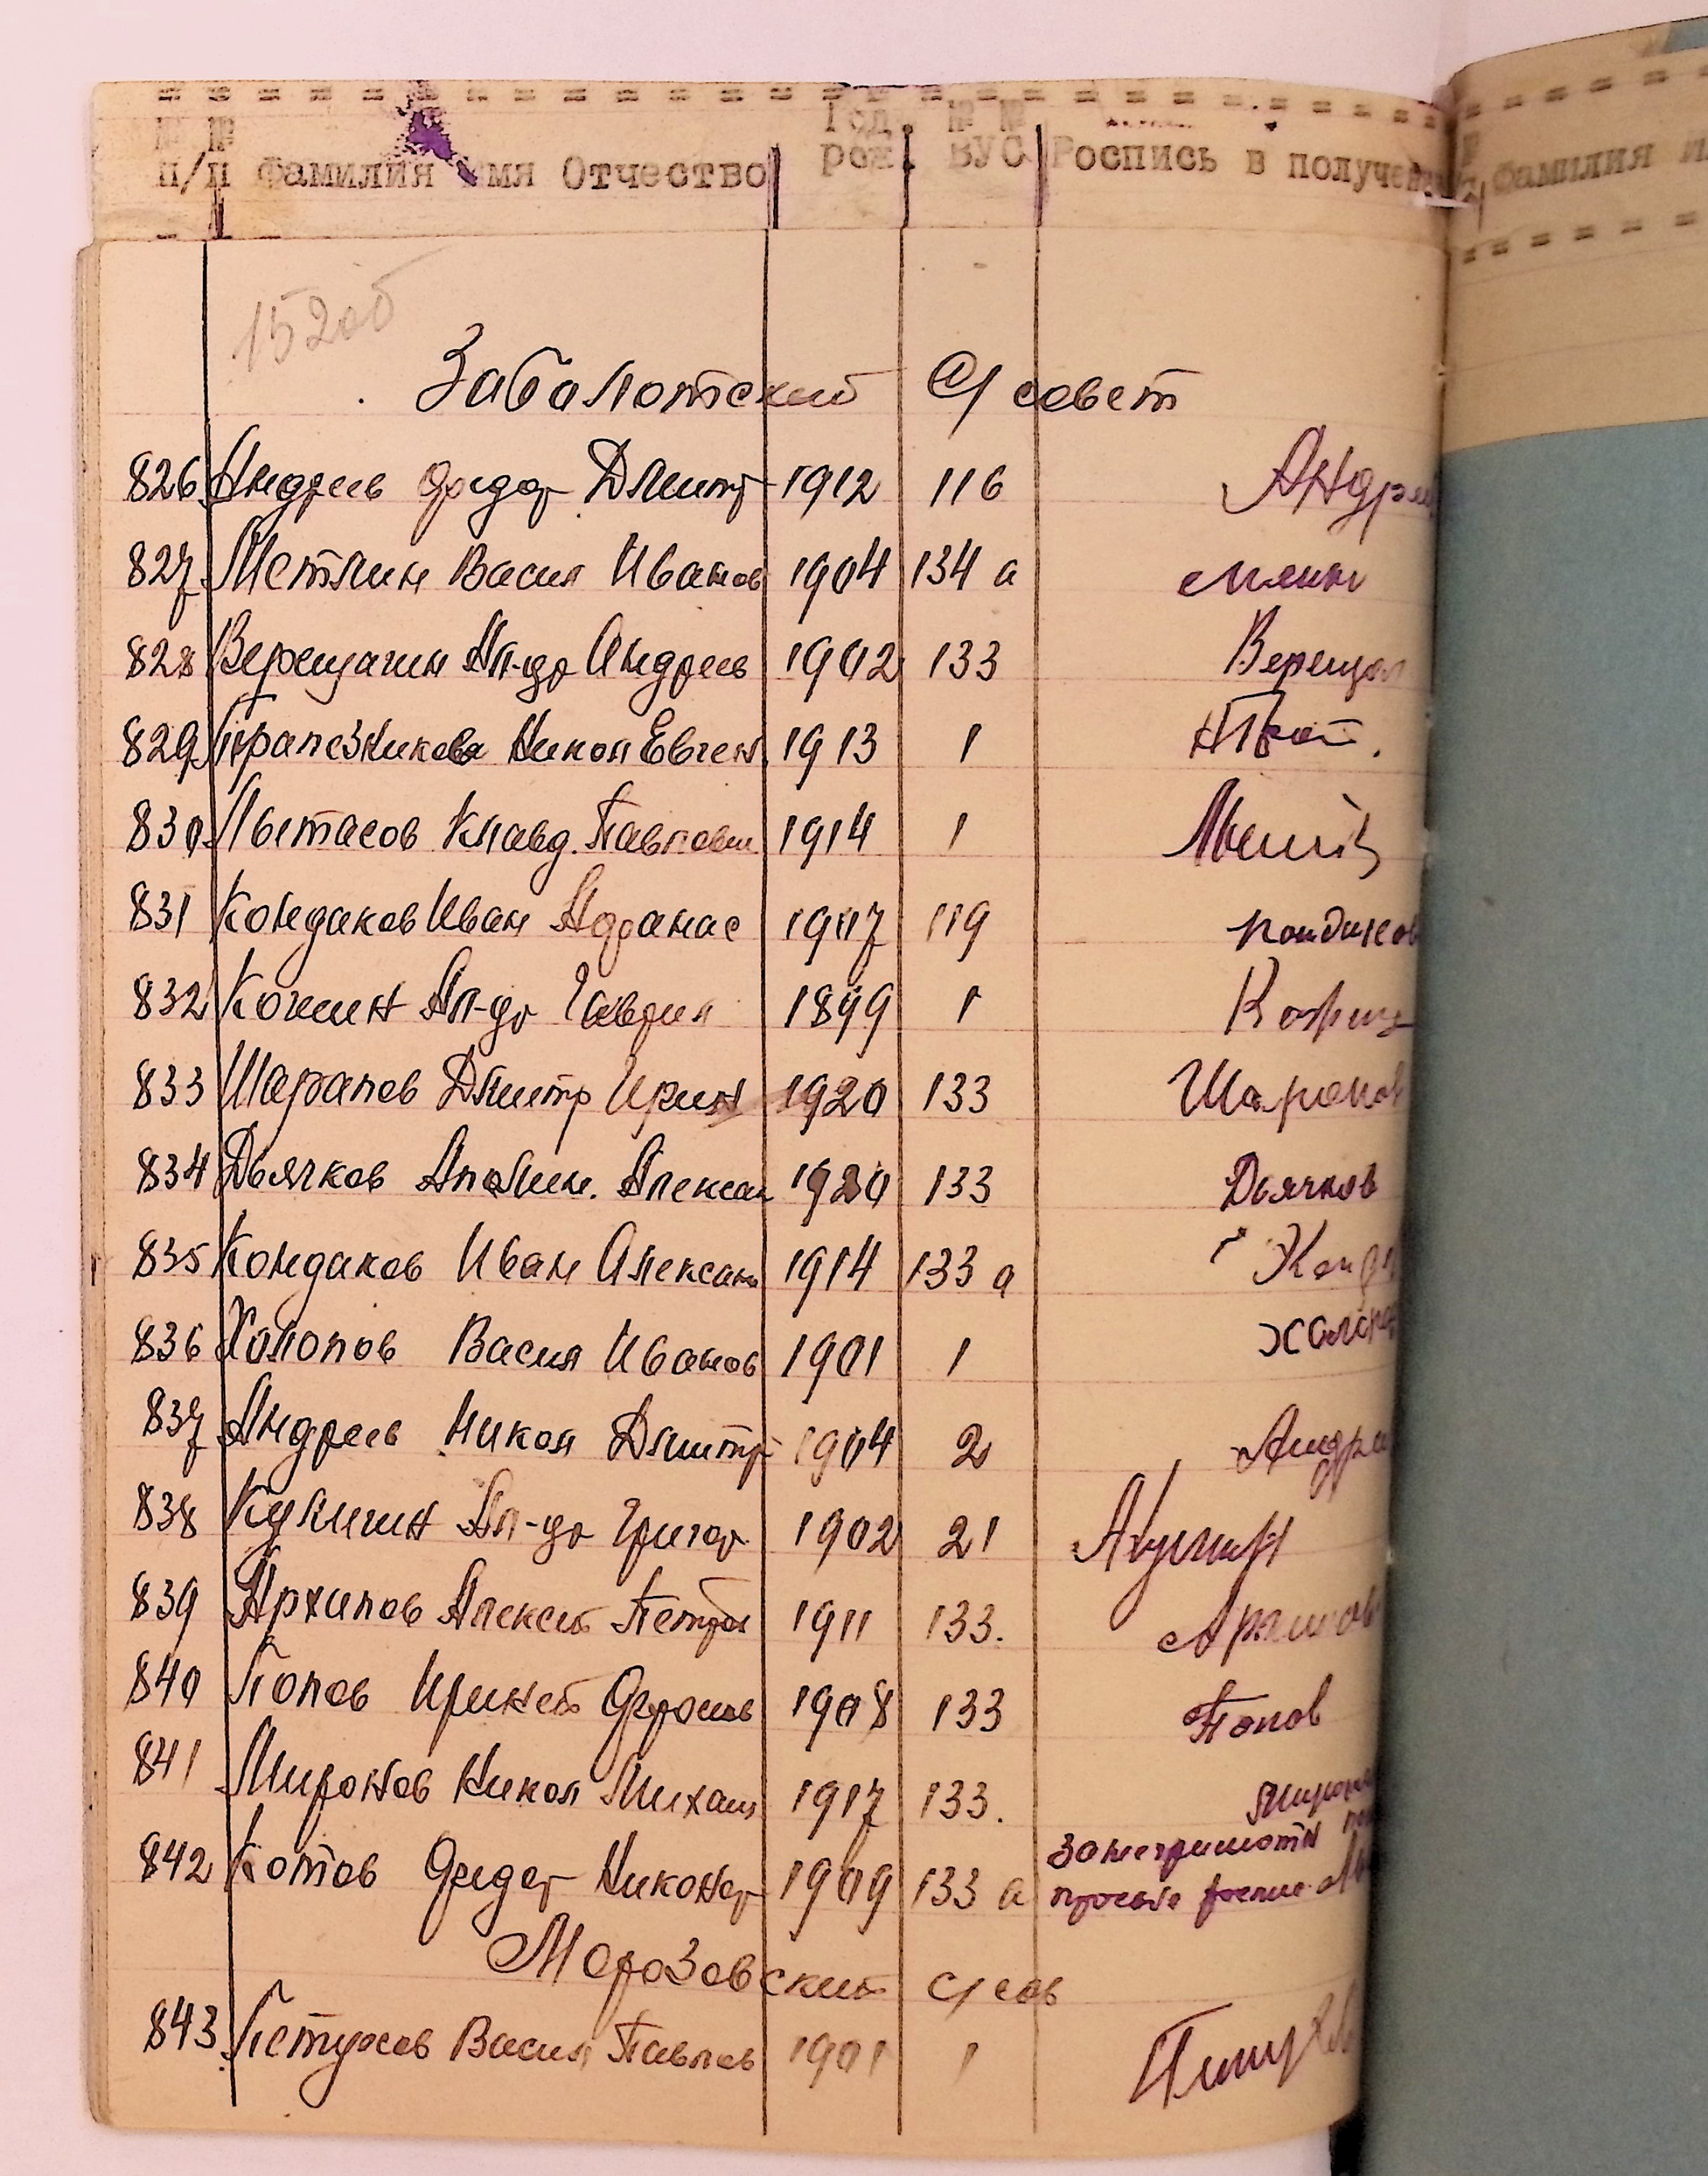 № № Год № №
п/п Фамилия Имя Отчество рож. ВУС Роспись в получен Фамилия и
15206
Заболотский с/совет
826 Андреев Федор Дмитр 1912 116 Андре
827 Метлин Васил Иванов 1904 134 а
828 Верещагин Ал-др Андреев 1902 133 Вереща
829 Трапезников Никол Евген. 1913 1
830 Лытасов Клавд. Павлови 1914 1
831 Кондаков Иван Афанас 1907 119 Кондаков
832 Кочин Ал-др Гаврил 1899 1
833 Шарапов Дмитр Ирин 1920 133 Шарапов
834 Дьячков Аполин. Алексан 1920 133 Дьячков
835 Кондаков Иван Алексан 1914 133 а Конд
836 Холопов Васил Иванов 1901 1 Холопо
837 Андреев Никол Дмитр 1904 2 Андре
838 Кулигин Ал-др Григор 1902 21
839 Архипов Алексей Петров 1911 133. Архипов
840 Попов Ириней Афонов 1908 133 Попов
841 Миронов Никол Михаил 1917 133. Мирон
842 Котов Федор Никонор 1909 133 а За неграмотн
Морозовский с/сов
843 Петухов Васил Павлов 1901 1 Петухов